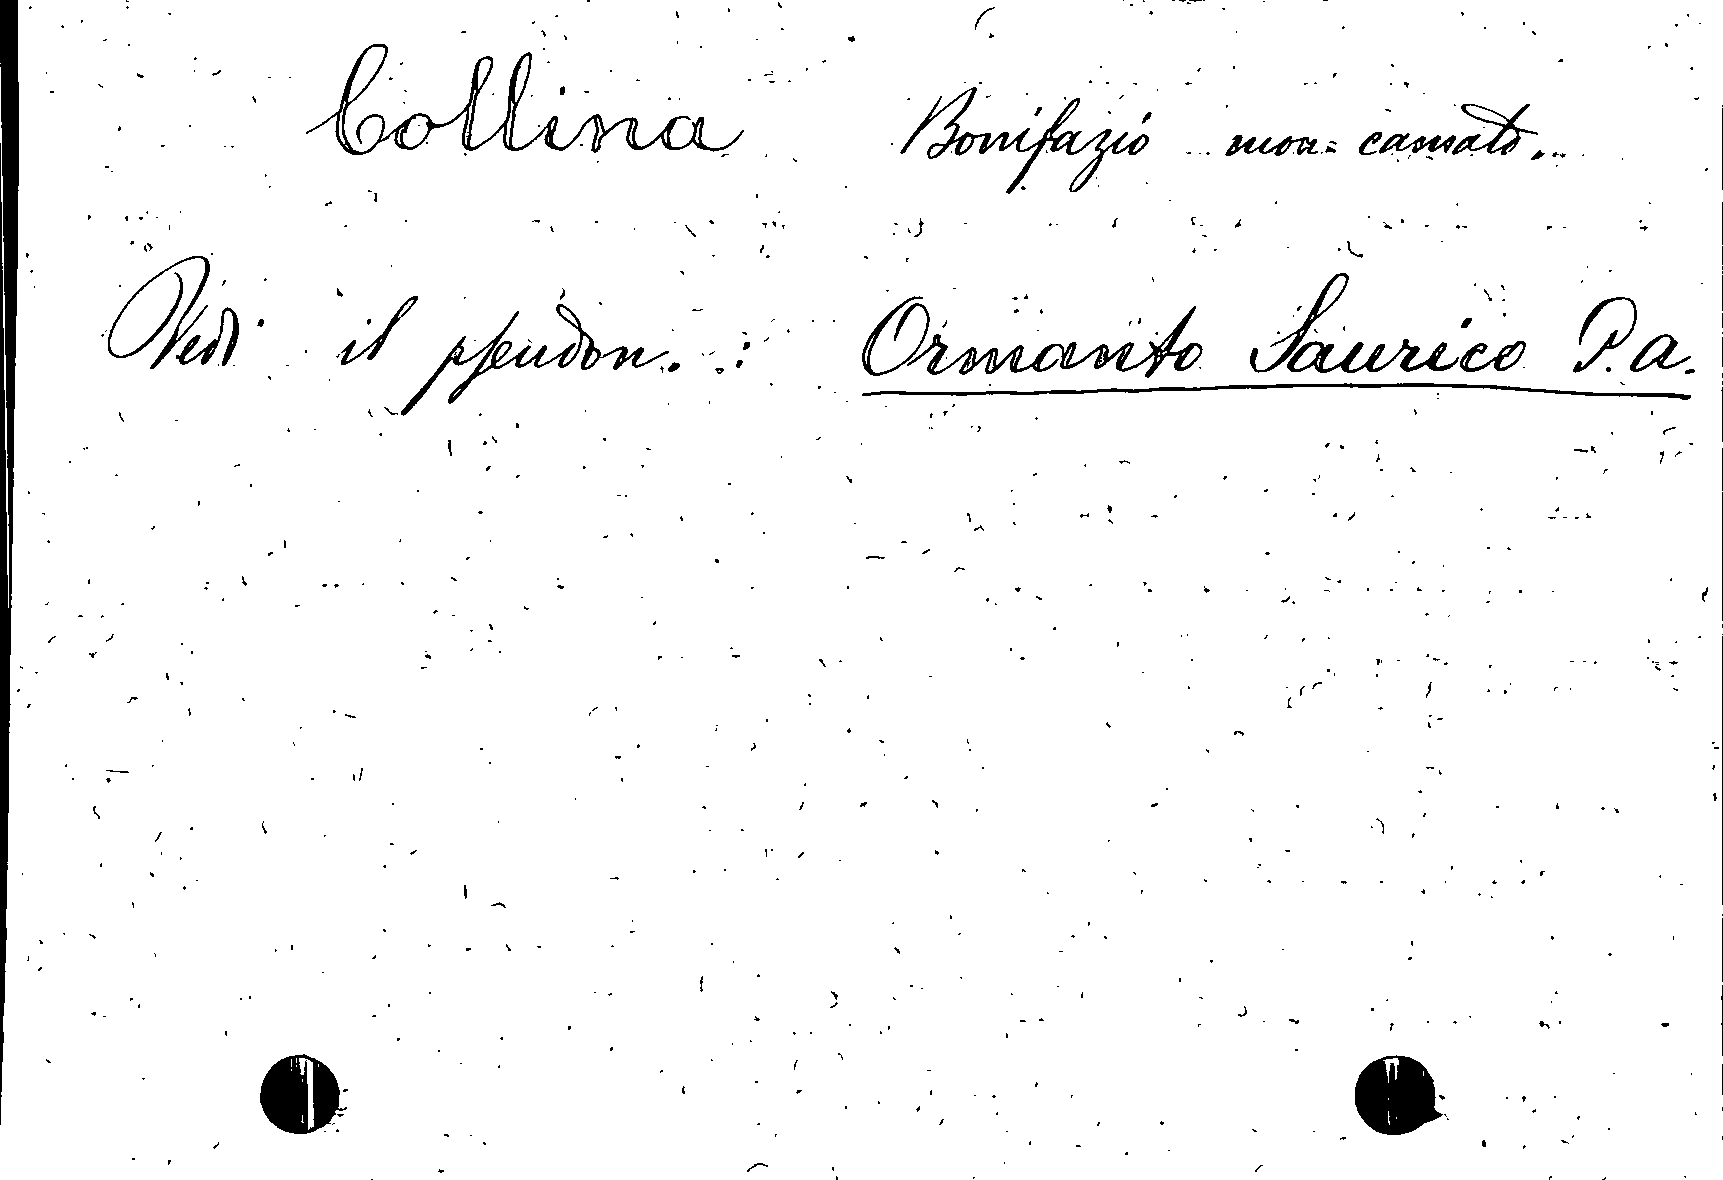 Collina Bonifazio mon= camald..
Vedi il pseudon. : Ormanto Saurico P. a.